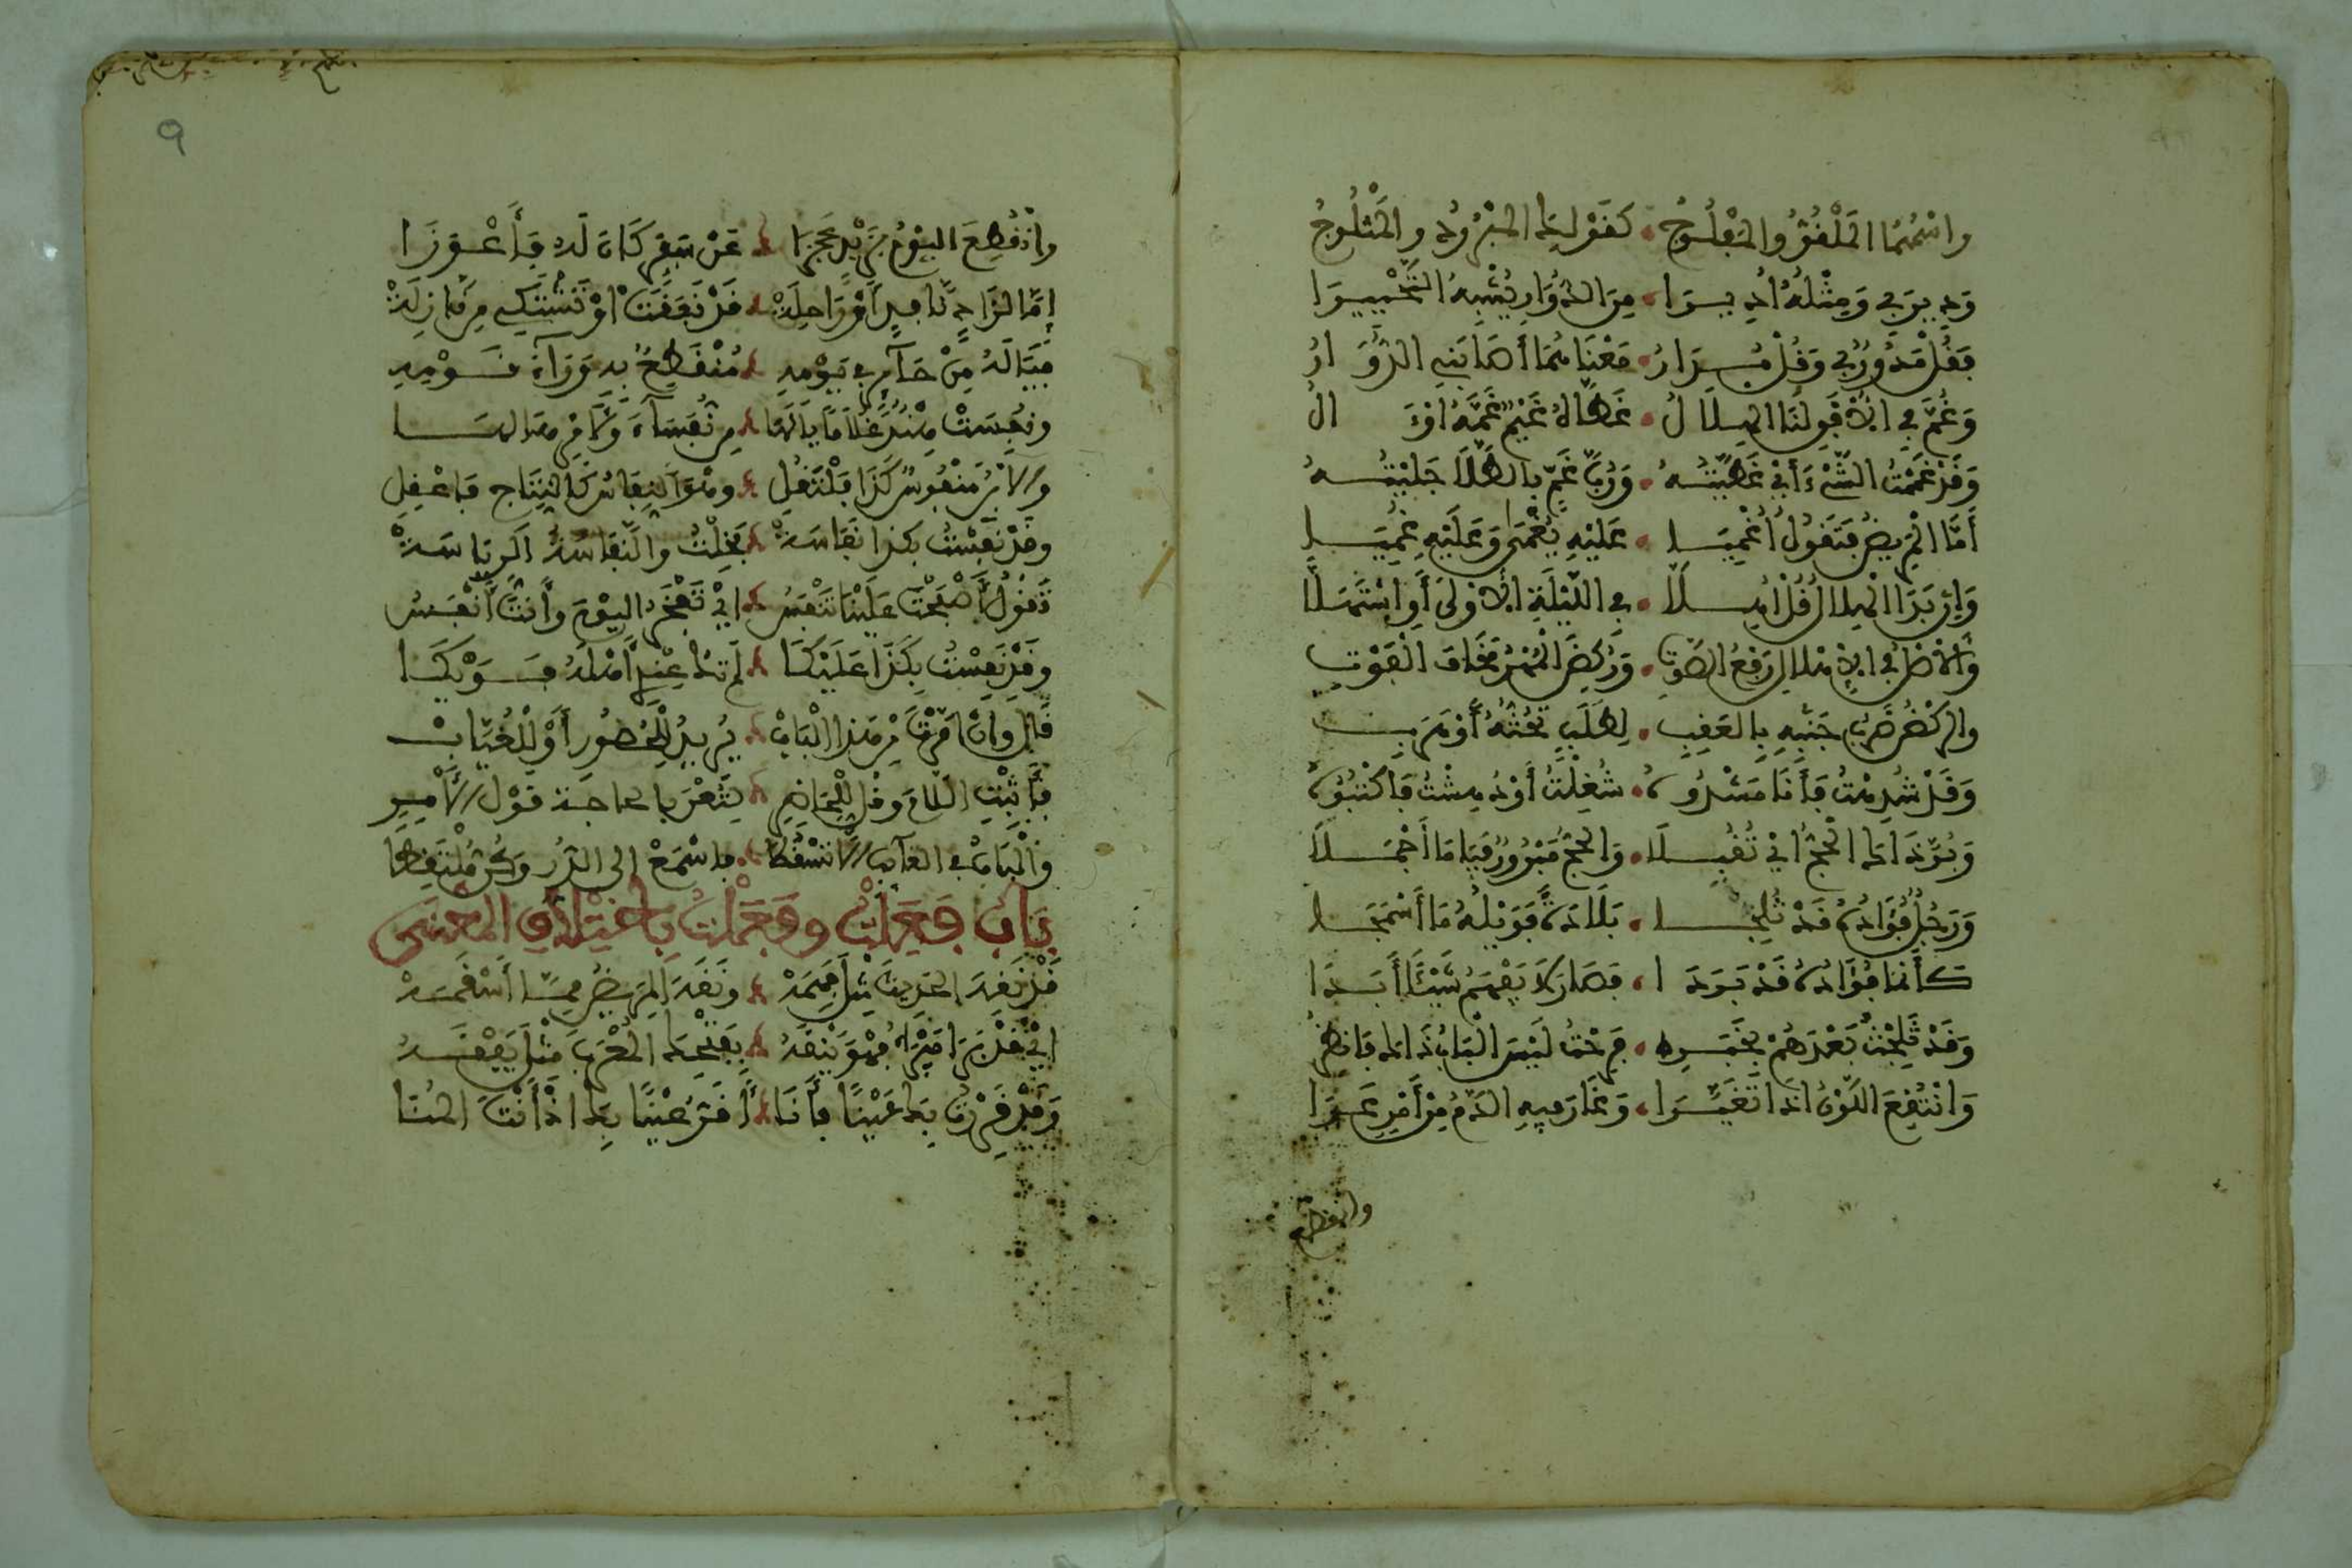 واسمهما الملفو والمفلوج كقولك المبرود والمثلوج
ودير بي ومثله اديرا من الدوار يشبه التحييرا
فقل مدور بي وقل مدار معناهما أصابني الدوار
وغم في الافق لنا الهلال غطاه غيم غمه اوال
وقد غممت الشيء أي غطيته ورب غم بالطلا جليته
أما المريض فتقول اغميا عليه يغمى وعليه غميا
وإن بدا الهلال قل اهلا في الليلة الاولى أو استهلا
والاصل في الاهلال رفع الصوت وركض المهر مخاف الفوت
والركض ضرب جنبيه بالعقب لطلب تحثه أو هرب
وقد شدهت فأنا مشدوه شغلت أو دهشت فاكتبوه
وبر ذاك الحج أي تقبلا والحج مبرور فيا ما أجملا
ورجل فؤاده قد ثلجا بلادة فويله ما أسمجا
كأنما فؤاده قد بردا فصار لا يفهم شيئا أبدا
وقد ثلجت بعدهم بخبر فرحت ليس الباب ذاك فانظر
وانتقع اللون اذا تغيرا وغار فيه الدم من أمر عرا
وانقطع
٩
وانقطع اليوم بزيد عجزا عن سفر كان له فأعوزا
إما لزاد نافد أو راحله قد نفقت او تشتكي من نازله
فيا له من حائر في يومه منقطع به وراء قومه
ونفست هند غلاما يا لها من نفساء ولأمر ما لها
والابن منفوس كذا فلتنقل وهو النفاس كالنتاج فاعقل
وقد نفست بكذا نفاسه بخلت والنفاسة الرياسه
تقول أصبحت علينا تنفس اي تفخر اليوم وأنت أنفس
وقد نفست بكذا عليكا لم تك عندي أهله فويكا
قال وإن أمرت من هذا الباب يريد للحضور أو للغياب
فأثبت اللام وقل للحاضر لتعن بالحاجة قول الآمر
والباب في الغائب الا تسقطا فاسمع الى الدر وكن ملتقطا
باب فعلت وفعلت باختلاف المعنى
قد نقه الحديث مثل فهمه ونقه المريض مما أسقمه
اي قد برا مبرأ فهو ينقه بفتحك الحرف مثل يفقه
وقد قررت بك عينا فأنا أقر عينا بك اذ أنت المنا